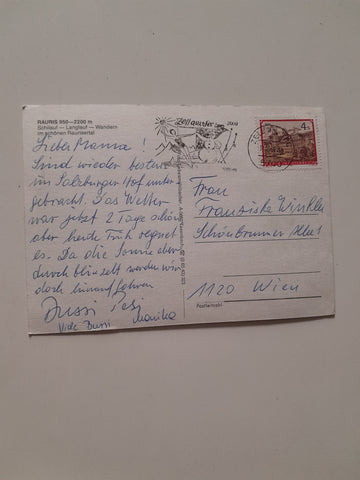 RAURIS 950—2200 m
Schilauf — Langlauf — Wandern
im schönen Raurisertal
Liebe Mama!
Sind wieder bestens
im Salzburger Hof unter
gebracht. Das Wetter
war jetzt 2 Tage schön
aber heute Früh regnet
es. Da die Sonne aber
durch blinzelt werden wir
doch hinauffahren
Bussi
Viele Bussi Monika
Zell am See
4 S
Frau
Franziska Winkler
Schönbrunner
1120 Wien
Postleitzahl